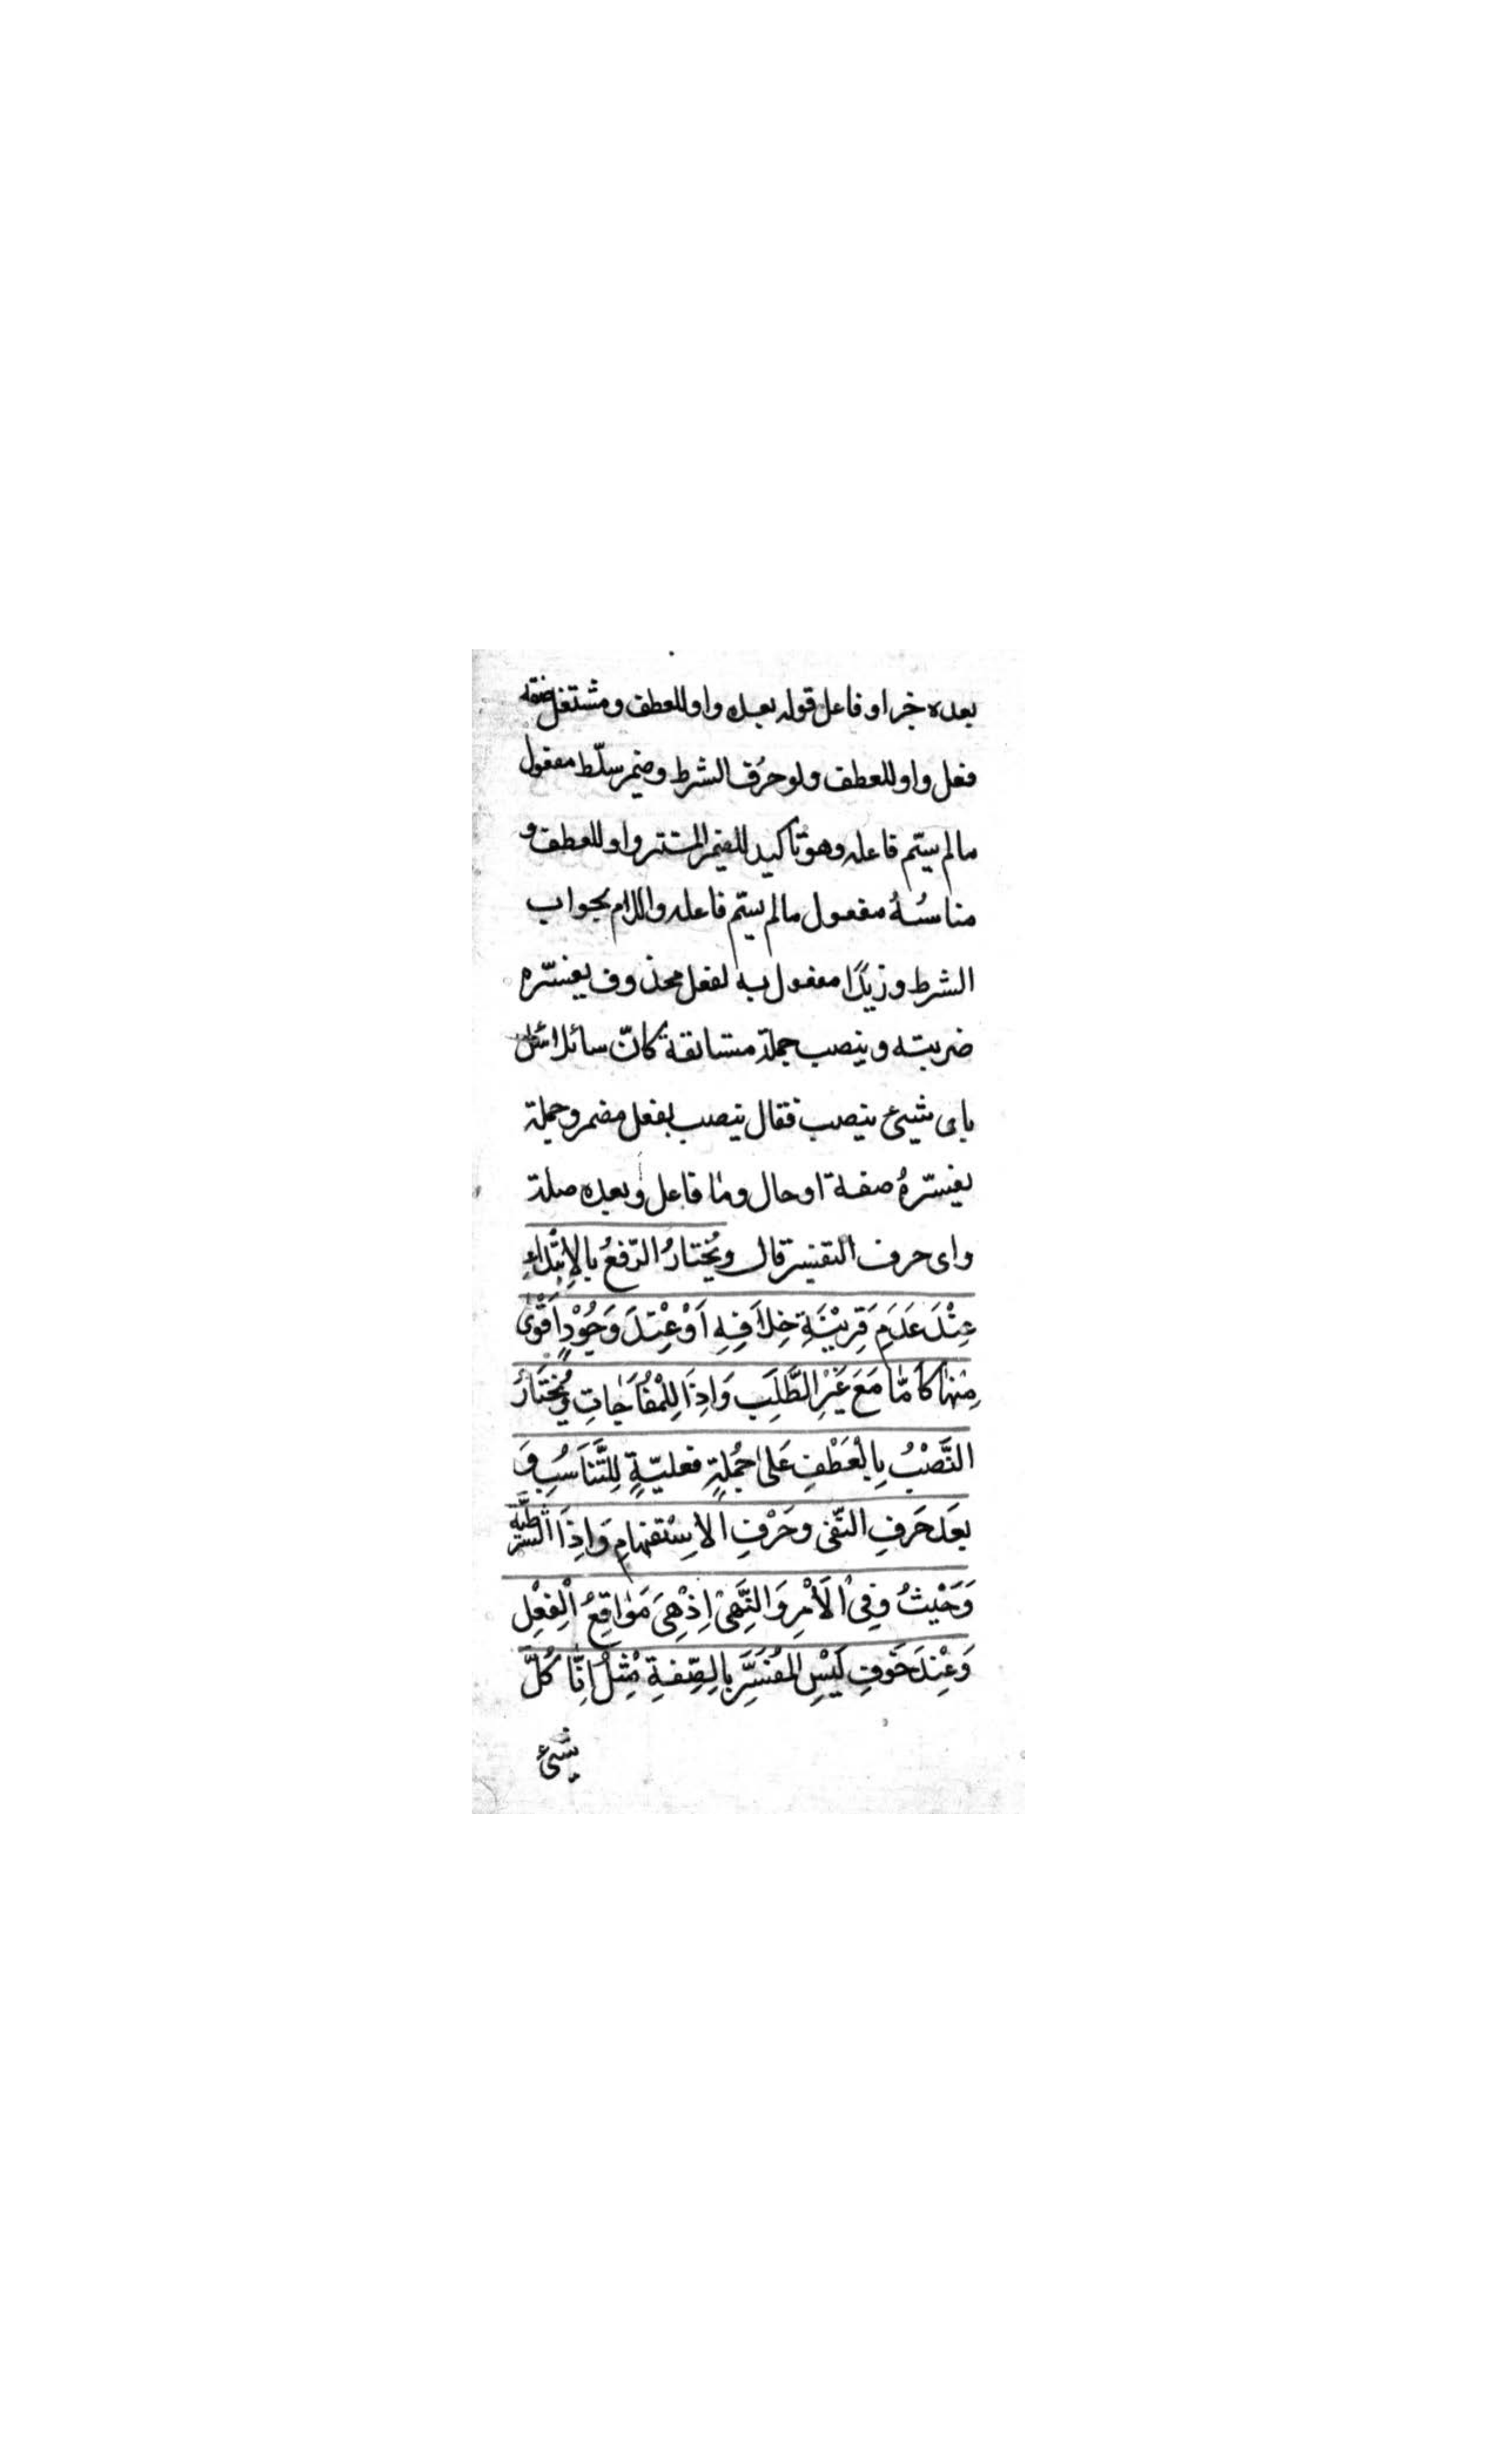 بعده خبر او فاعل قوله بعده واو للعطف ومشتغل صفة
فعل واو للعطف ولو حرف الشرط وضمير سلّط مفعول
مالم يسّم فاعله وهو تاكيد للضمير المستتر واو للعطف و
مناسبُهُ مفعول مالم يسّم فاعله واللام بجواب
الشرط وزيدًا مفعول به لفعل محذوف يفسّره
ضربته وينصب جملة مستانفة كانّ سائلا سئل
باى شيئ ينصب فقال ينصب بفعل مضمر وجملة
يفسّرهُ صفة او حال وما فاعل وبعده صلة
واى حرف التفسير قال ويُختارُ الرّفعُ بالاِبْتِدَاءِ
عِنْدَ عَدَمِ قَرِيْنَةِ خِلَافِهِ اَوْ عِنْدَ وُجُوْدِ اَقْوٰى
مِنْهَا كَاَمَّا مَعَ غَيْرِ الطَّلَبِ وَاِذَا لِلْمُفَاجَاتِ وَيُخْتَارُ
النَّصْبُ بِالْعَطْفِ عَلٰى جُمْلَةٍ فعليّةٍ لِلتَّنَاسُبِ وَ
بعَدَ حَرفِ النّفى وحَرْفِ الاِسْتفهامِ وَاِذَا الشّرطيّة
وَحَيْثُ وَفِى الْاَمْرِ وَالنَّهْىِ اِذْ هِىَ مَوٰاقِعُ الْفِعْلِ
وَعِنْدَ خَوْفِ لَبْسِ المُفَسَّرِ بالصِّفةِ مِثْلُ اِنَّا كُلَّ
شَىْءٍ